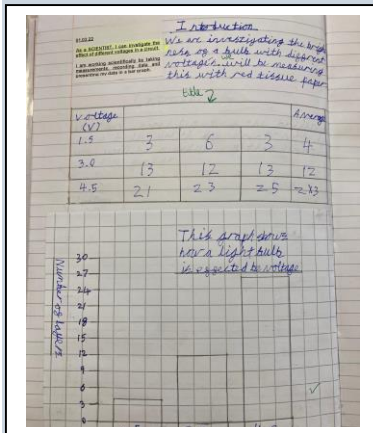 Introduction
01.03.22
As a SCIENTIST, I can investigate the
effect of different voltages in a circuit.
I am working scientifically by taking
measurements, recording data and
presenting my data in a bar graph.
We are investigating the brigh
ness of a bulb with different
voltages. will be measuring
this with red tissue paper
title
voltage
(V)
Average
1.5 3 6 3 4
3.0 13 12 13 12
4.5 21 23 25 23
This graph shows
how a light bulb
is effected by voltage
Number of layers
30
27
24
21
18
15
12
9
6
3
0